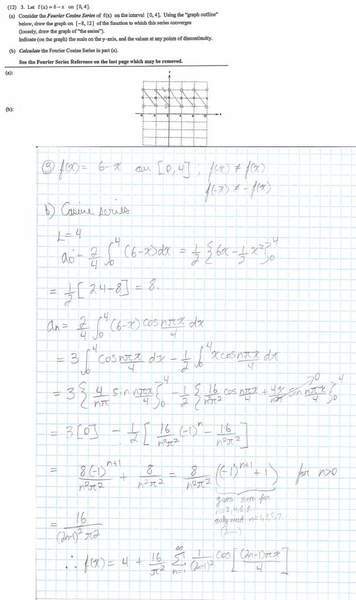 (12) 3. Let f(x) = 6 – x on [0, 4].
(a) Consider the Fourier Cosine Series of f(x) on the interval [0, 4]. Using the "graph outline"
below, draw the graph on [–8, 12] of the function to which this series converges
(loosely, draw the graph of "the series").
Indicate (on the graph) the scale on the y-axis, and the values at any points of discontinuity.
(b) Calculate the Fourier Cosine Series in part (a).
See the Fourier Series Reference on the last page which may be removed.
(a):
(b):
③ f(x) = 6-x on [0,4] ; f(-x) ≠ f(x)
f(-x) ≠ -f(x)
b) Cosine series
L = 4
a₀ = 2/4 ∫₀⁴ (6-x)dx = 1/2 {6x - 1/2 x²}₀⁴
= 1/2 [24-8] = 8.
aₙ = 2/4 ∫₀⁴ (6-x) cos nπx/4 dx
= 3 ∫₀⁴ cos nπx/4 dx - 1/2 ∫₀⁴ x cos nπx/4 dx
= 3 {4/nπ sin nπx/4}₀⁴ - 1/2 {16/n²π² cos nπx/4 + 4x/nπ sin nπx/4}₀⁴
= 3[0] - 1/2 [16/n²π² (-1)ⁿ - 16/n²π²]
= 8(-1)ⁿ⁺¹/n²π² + 8/n²π² = 8/n²π² ((-1)ⁿ⁺¹ + 1) for n>0
gives zero for
n=2,4,6,8
only need n=1,3,5,7
= 16/(2n-1)²π²
∴ f(x) = 4 + 16/π² ∑ₙ₌₁^∞ 1/(2n-1)² cos [(2n-1)πx/4]